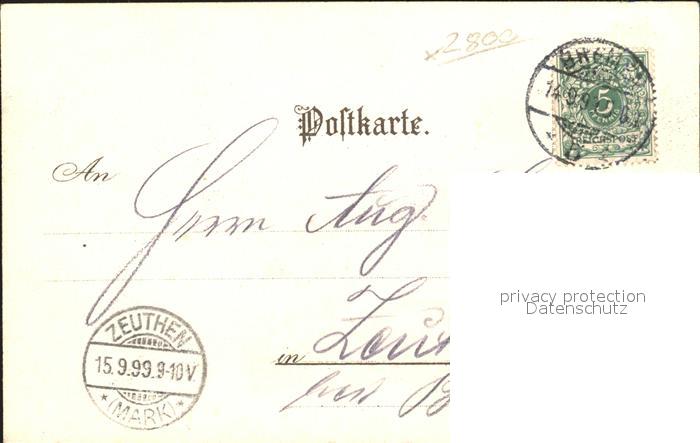 2800
BREMEN
14.9.99
5
PFENNIG
REICHSPOST
Postkarte.
An
Herrn Aug.
privacy protection
Datenschutz
ZEUTHEN
15.9.99.9-10V.
* (MARK) *
in Zeut
bei B